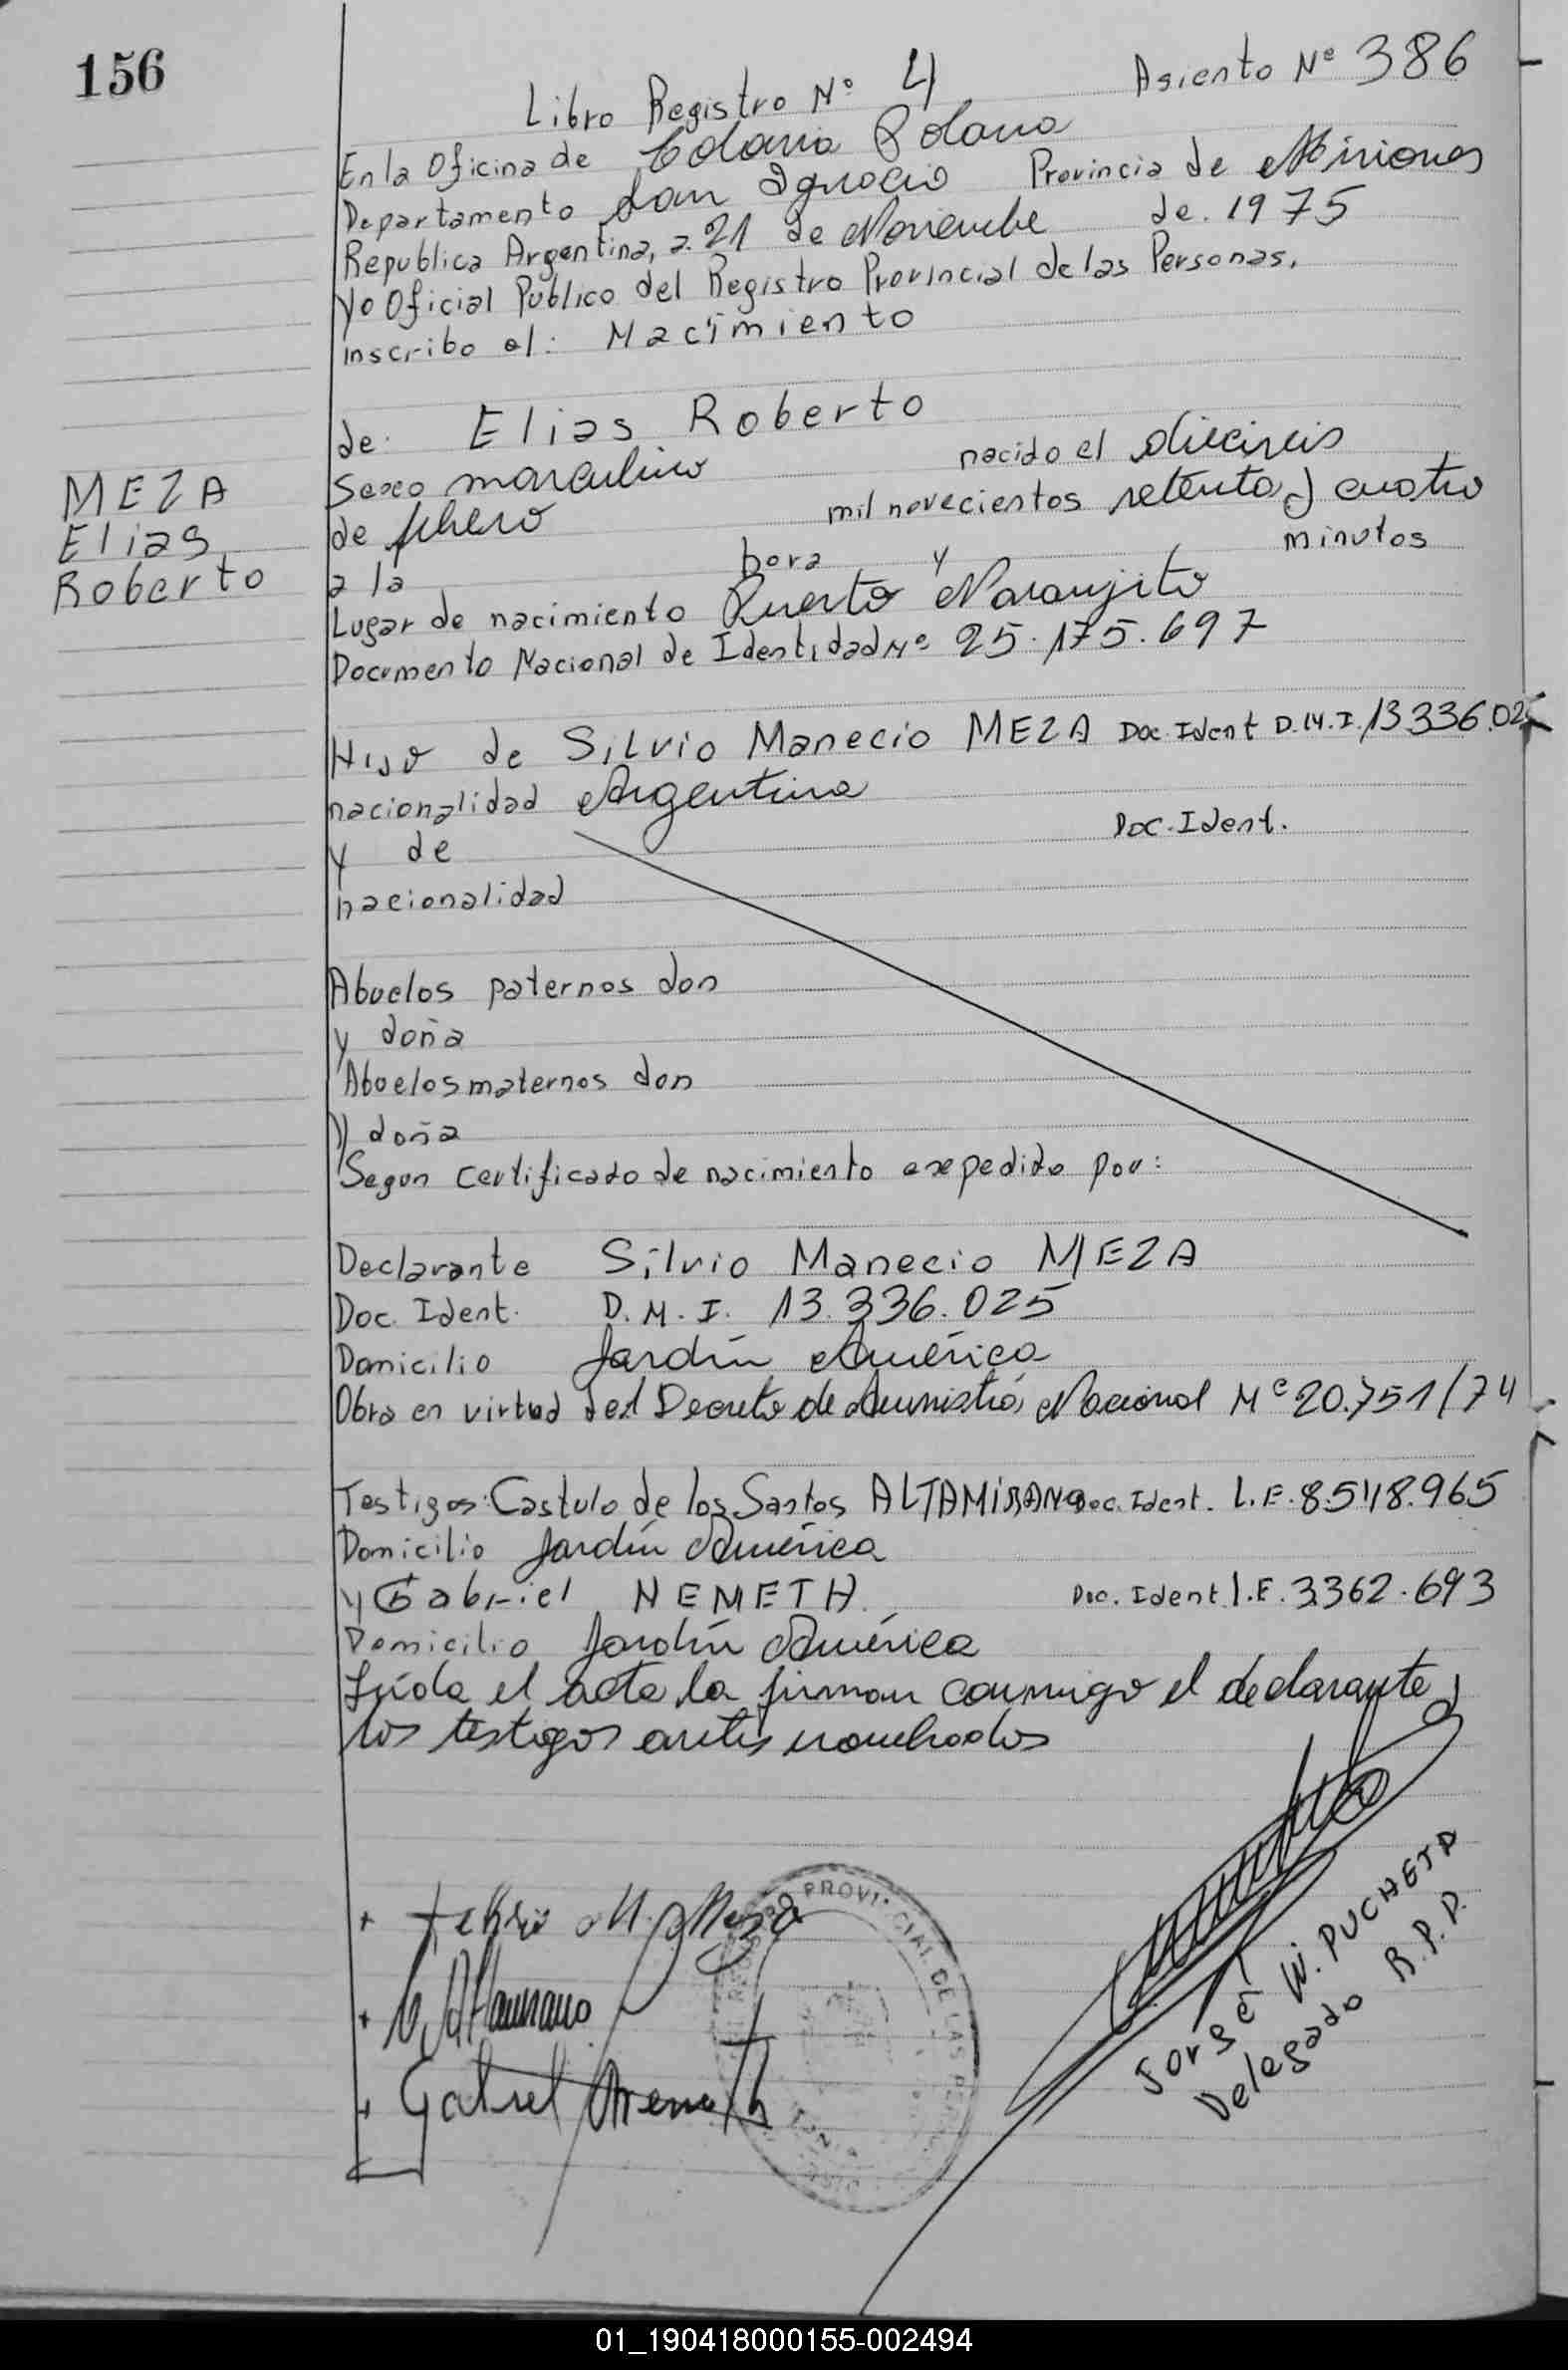 156
Libro Registro Nº 4 Asiento Nº 386
En la Oficina de Colonia Polana
Departamento San Ignacio Provincia de Misiones
Republica Argentina, a 21 de Noviembre de 1975
Yo Oficial Publico del Registro Provincial de las Personas,
inscribo el: Nacimiento
de: Elias Roberto
MEZA
Elias
Roberto
Sexo masculino nacido el dieciseis
de febrero mil novecientos setenta y cuatro
a la hora y minutos
Lugar de nacimiento Puerto Naranjito
Documento Nacional de Identidad Nº 25.175.697
Hijo de Silvio Manecio MEZA Doc. Ident D.N.I. 13.336.025
nacionalidad Argentina
y de Doc. Ident.
nacionalidad
Abuelos paternos don
y doña
Abuelos maternos don
y doña
Segun certificado de nacimiento expedido por:
Declarante Silvio Manecio MEZA
Doc. Ident. D.N.I. 13.336.025
Domicilio Jardín América
Obra en virtud del Decreto de Amnistía Nacional Nº 20.751/74
Testigos: Castulo de los Santos ALTAMIRANO Doc. Ident. L.E. 8.548.965
Domicilio Jardín América
y Gabriel NEMETH Doc. Ident L.E. 3.362.693
Domicilio Jardín América
Leída el acta la firman conmigo el declarante y
los testigos antes nombrados
M. Meza
PROVINCIAL DE LAS PERSONAS
Altamirano
Gabriel Nemeth
JORGE W. PUCHETA
Delegado R.P.P.
01_190418000155-002494